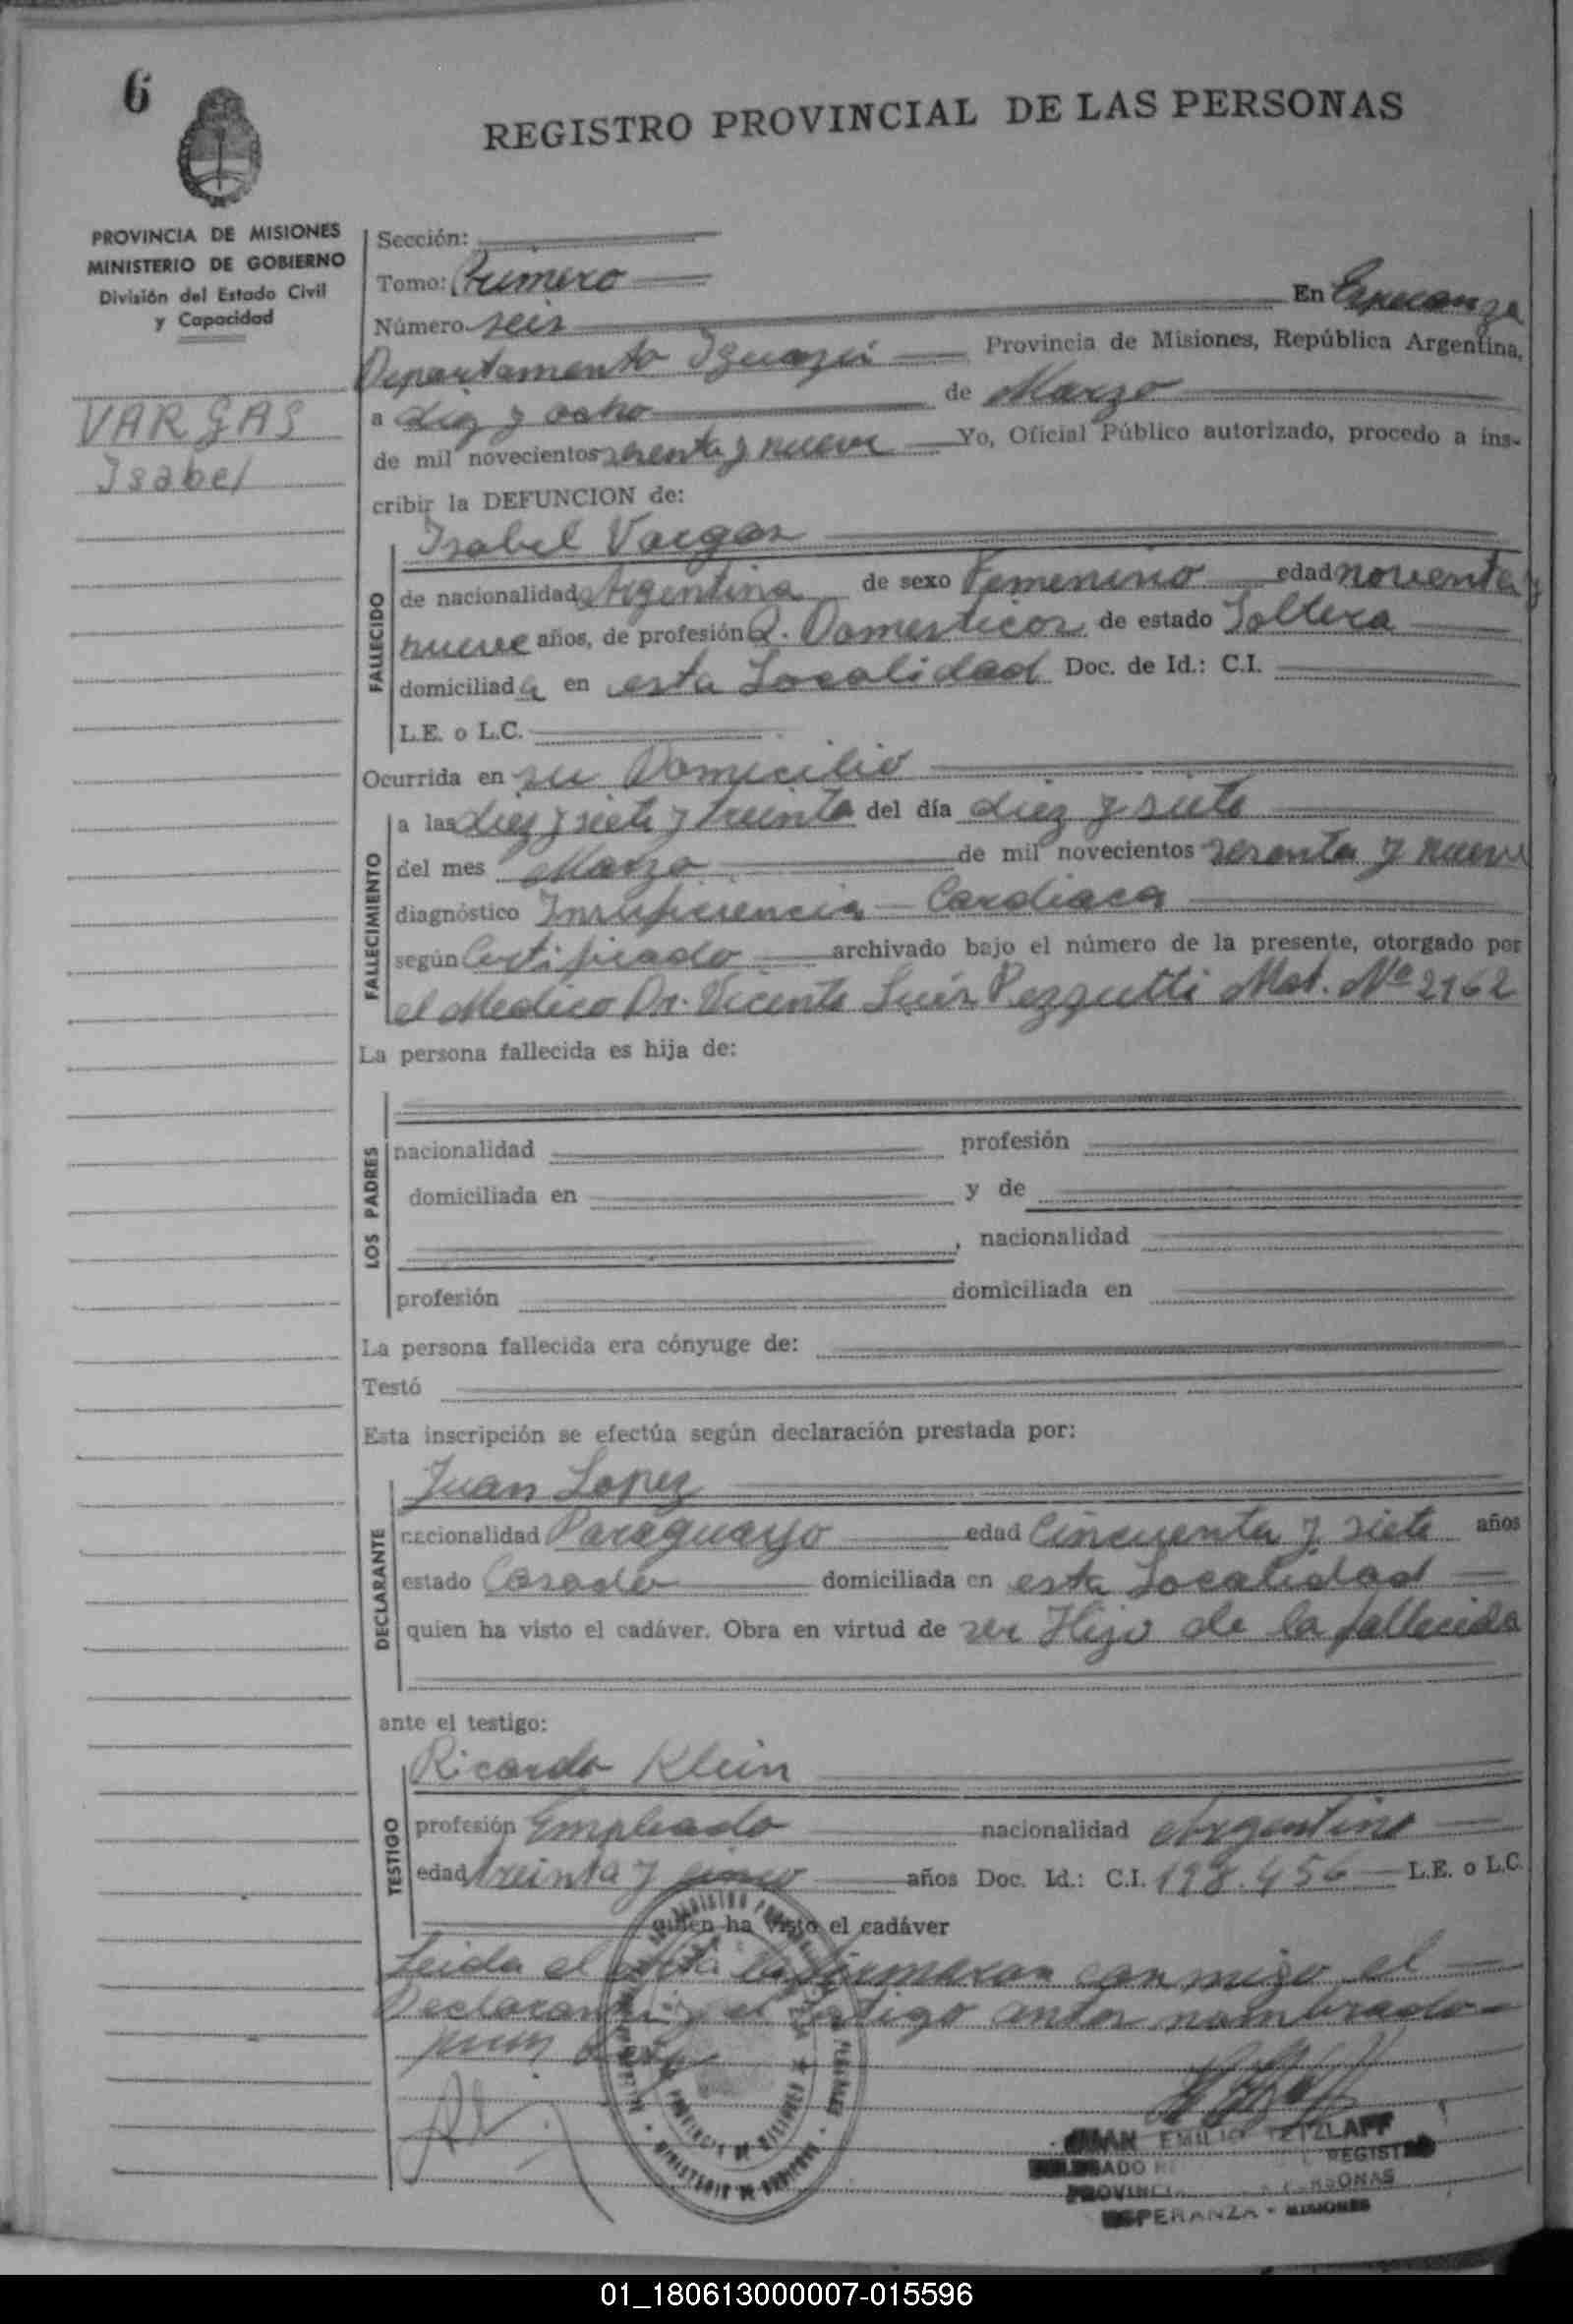 6
REGISTRO PROVINCIAL DE LAS PERSONAS
PROVINCIA DE MISIONES
MINISTERIO DE GOBIERNO
División del Estado Civil
y Capacidad
VARGAS
Isabel
Sección:
Tomo: Primero
Número seis En Esperanza
Departamento Iguazú Provincia de Misiones, República Argentina,
a diez y ocho de Marzo
de mil novecientos sesenta y nueve Yo, Oficial Público autorizado, procedo a ins-
cribir la DEFUNCION de:
Isabel Vargas
FALLECIDO
de nacionalidad Argentina de sexo Femenino edad noventa y
nueve años, de profesión Q. Domesticos de estado Soltera
domiciliada en esta Localidad Doc. de Id.: C.I.
L.E. o L.C.
Ocurrida en su Domicilio
FALLECIMIENTO
a las diez y siete y treinta del día diez y siete
del mes Marzo de mil novecientos sesenta y nueve
diagnóstico Insuficiencia - Cardiaca
según Certificado archivado bajo el número de la presente, otorgado por
el Medico Dr. Vicente Luis Pezzutti Mat. Nº 2162
La persona fallecida es hija de:
LOS PADRES
nacionalidad profesión
domiciliada en y de
, nacionalidad
profesión domiciliada en
La persona fallecida era cónyuge de:
Testó
Esta inscripción se efectúa según declaración prestada por:
Juan Lopez
DECLARANTE
nacionalidad Paraguayo edad Cincuenta y siete años
estado Casado domiciliada en esta Localidad
quien ha visto el cadáver. Obra en virtud de ser Hijo de la fallecida
ante el testigo:
Ricardo Klein
TESTIGO
profesión Empleado nacionalidad Argentino
edad treinta y cinco años Doc. Id.: C.I. 198.456 L.E. o L.C.
quien ha visto el cadáver
Leida el acta la firmaron conmigo el
Declarante y el testigo antes nombrado
PROVINCIA DE MISIONES
MINISTERIO DE GOBIERNO
JUAN EMILIO TETZLAFF
REGISTRO
PERSONAS
ESPERANZA - MISIONES
01_180613000007-015596